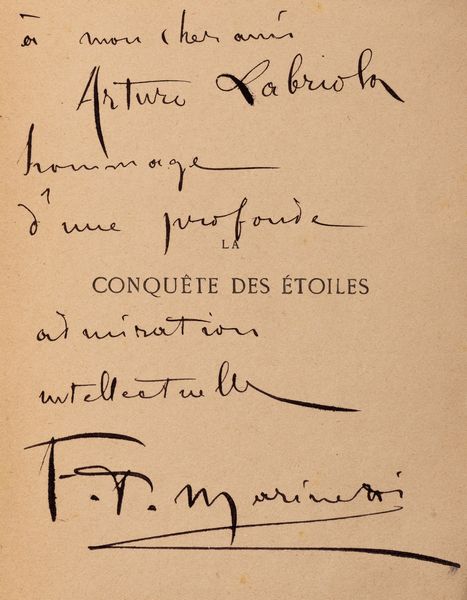 à mon cher ami
Arturo Labriola
hommage
d'une profonde
LA
CONQUÊTE DES ÉTOILES
admiration
intellectuelle
F.T. Marinetti